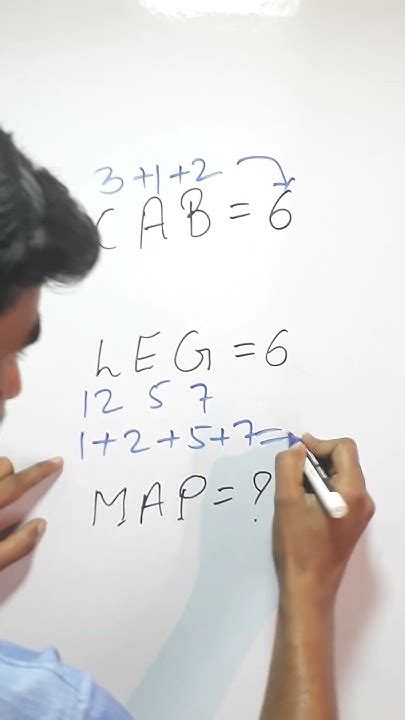 3+1+2
CAB=6
LEG=6
12 5 7
1+2+5+7=
MAP=?